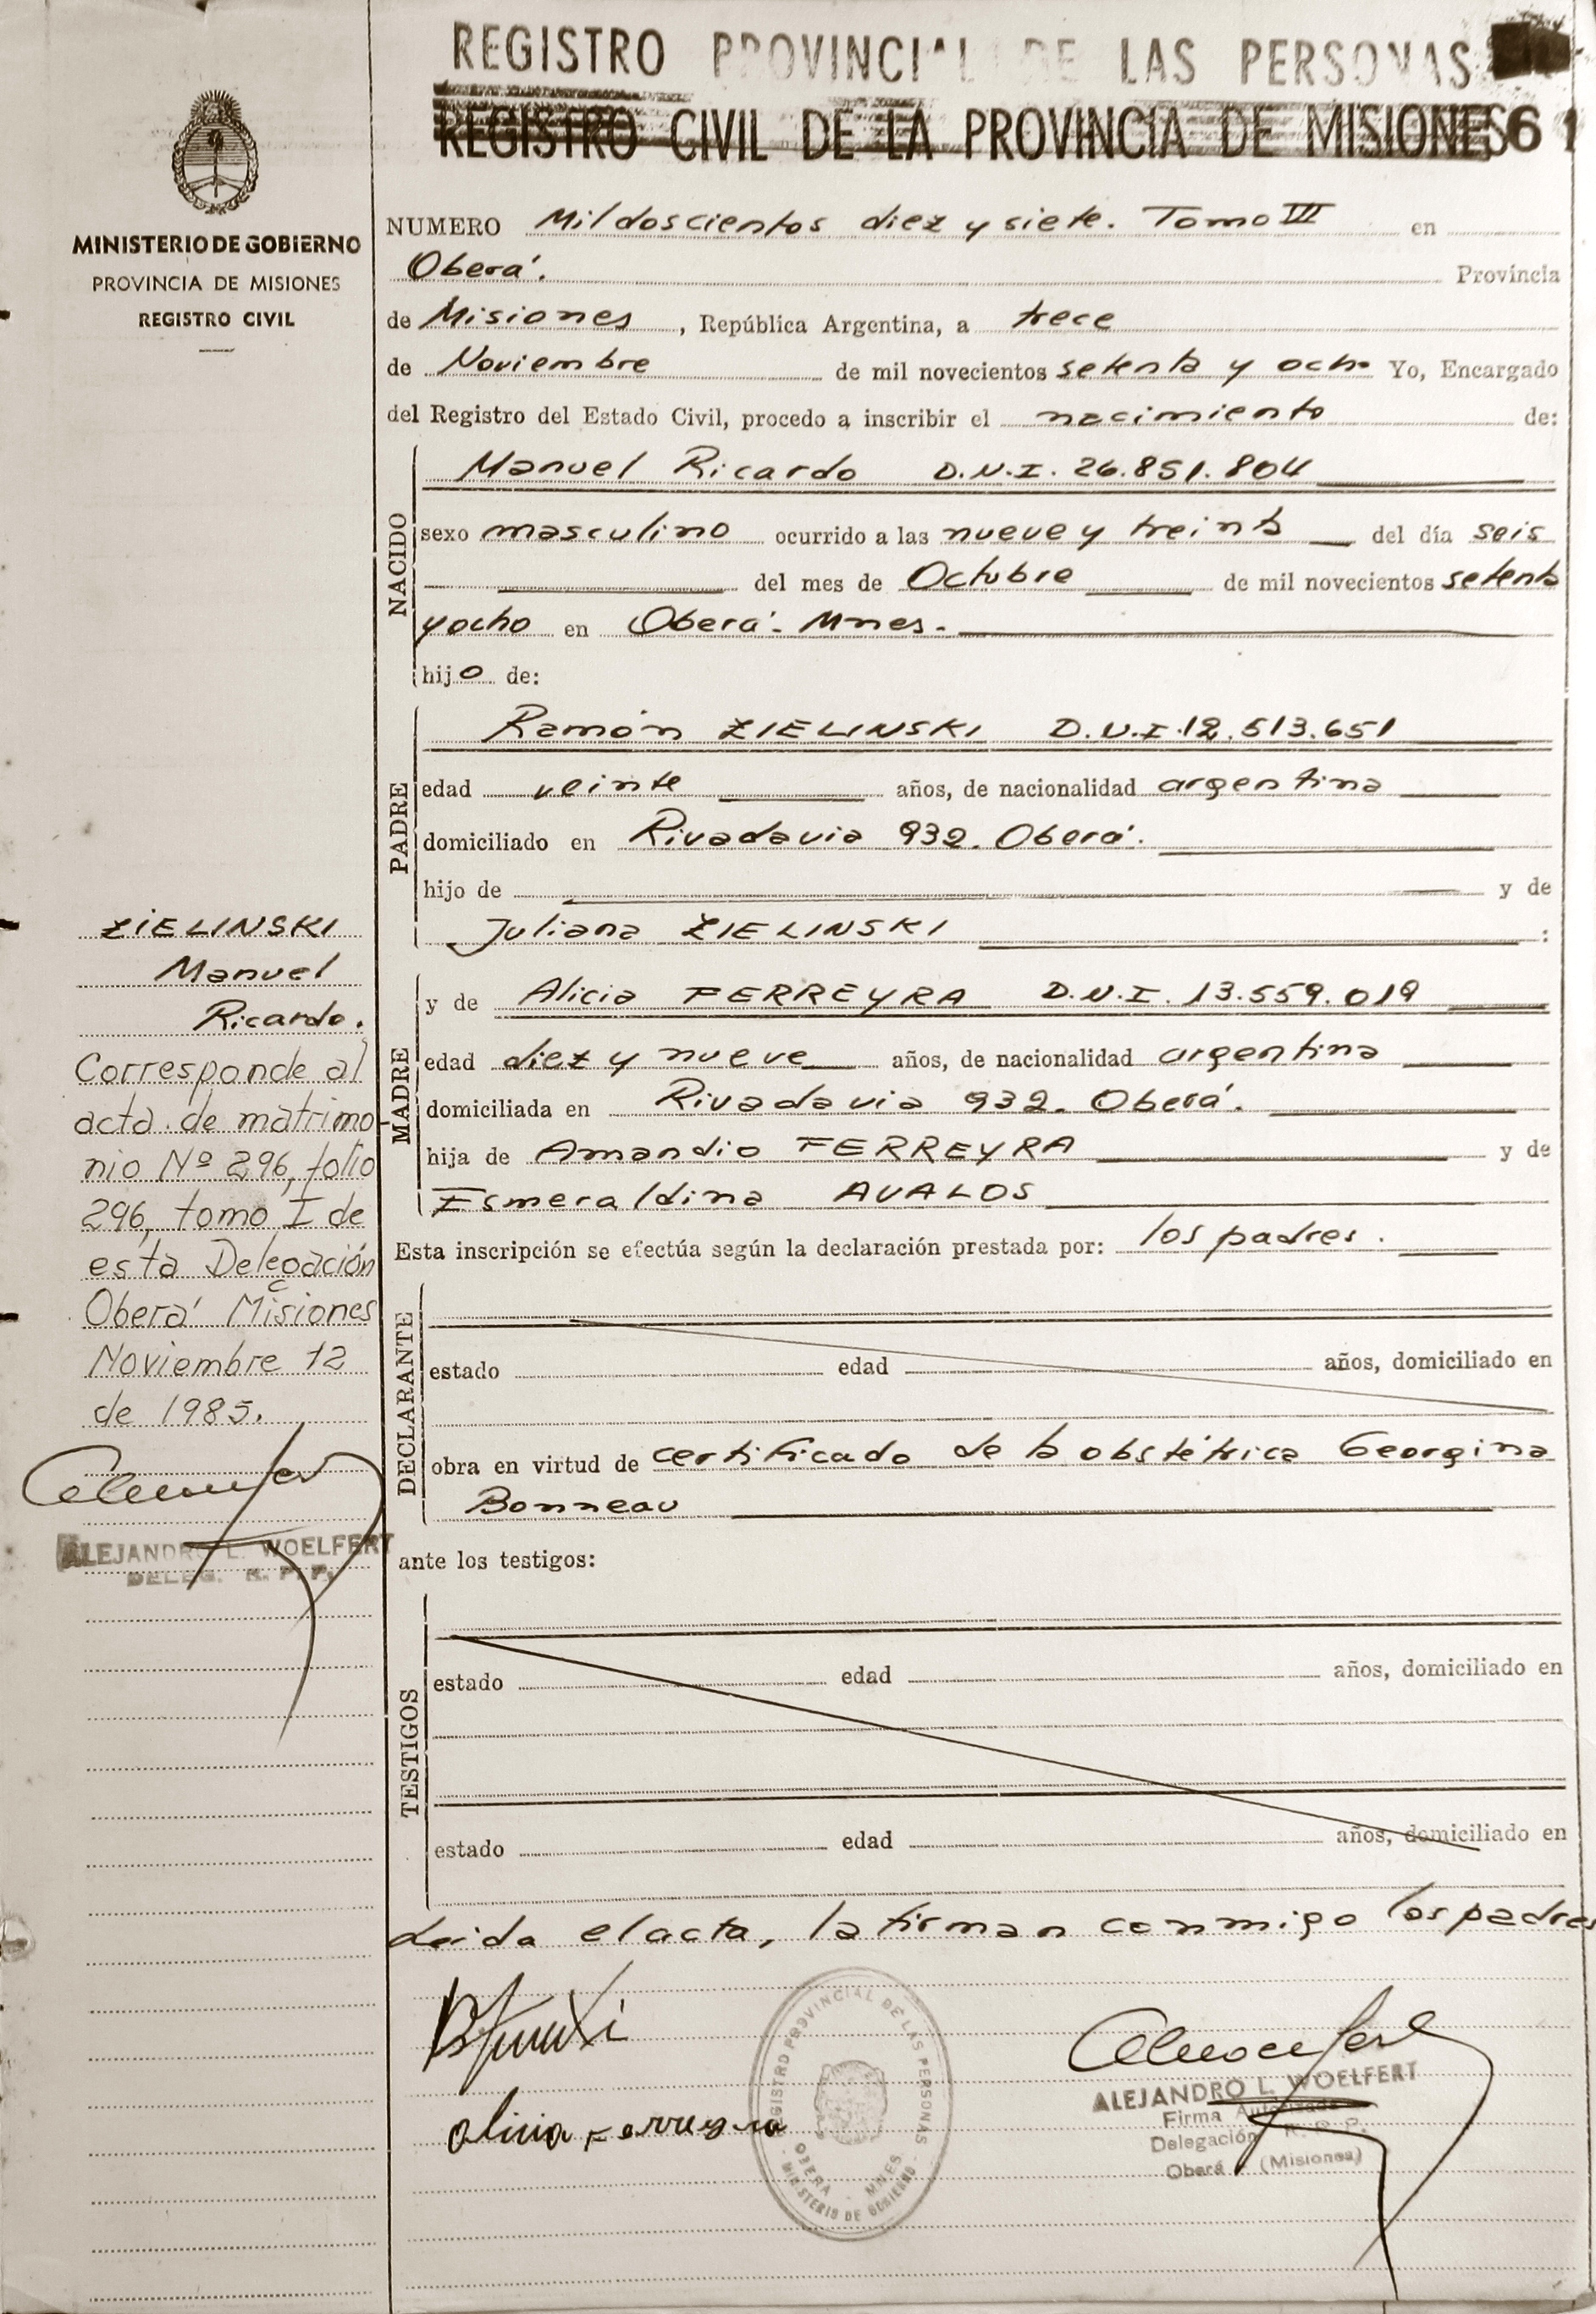 REGISTRO PROVINCIAL DE LAS PERSONAS
REGISTRO CIVIL DE LA PROVINCIA DE MISIONES 61
MINISTERIO DE GOBIERNO
PROVINCIA DE MISIONES
REGISTRO CIVIL
NUMERO Mil doscientos diez y siete. Tomo III en
Oberá. Provincia
de Misiones, República Argentina, a trece
de Noviembre de mil novecientos setenta y ocho Yo, Encargado
del Registro del Estado Civil, procedo a inscribir el nacimiento de:
NACIDO
Manuel Ricardo D.N.I. 26.851.804
sexo masculino ocurrido a las nueve y treinta del día seis
del mes de Octubre de mil novecientos setenta
y ocho en Oberá. Mnes.
hijo de:
PADRE
Ramón ZIELINSKI D.N.I. 12.513.651
edad veinte años, de nacionalidad argentina
domiciliado en Rivadavia 932. Oberá.
hijo de y de
Juliana ZIELINSKI :
MADRE
y de Alicia FERREYRA D.N.I. 13.559.019
edad diez y nueve años, de nacionalidad argentina
domiciliada en Rivadavia 932. Oberá.
hija de Amandio FERREYRA y de
Esmeraldina AVALOS
Esta inscripción se efectúa según la declaración prestada por: los padres.
DECLARANTE
estado edad años, domiciliado en
obra en virtud de certificado de la obstétrica Georgina
Bonneau
ante los testigos:
TESTIGOS
estado edad años, domiciliado en
estado edad años, domiciliado en
Leida el acta, la firman conmigo los padres
ZIELINSKI
Manuel
Ricardo.
Corresponde al
acta de matrimo
nio Nº 296, folio
296, tomo I de
esta Delegación
Oberá Misiones
Noviembre 12
de 1985.
ALEJANDRO L. WOELFERT
DELEG. R. P. P.
Alicia Ferreyra
REGISTRO PROVINCIAL DE LAS PERSONAS
OBERA - MNES
MINISTERIO DE GOBIERNO
ALEJANDRO L. WOELFERT
Firma Autorizada
Delegación R. P. P.
Oberá (Misiones)